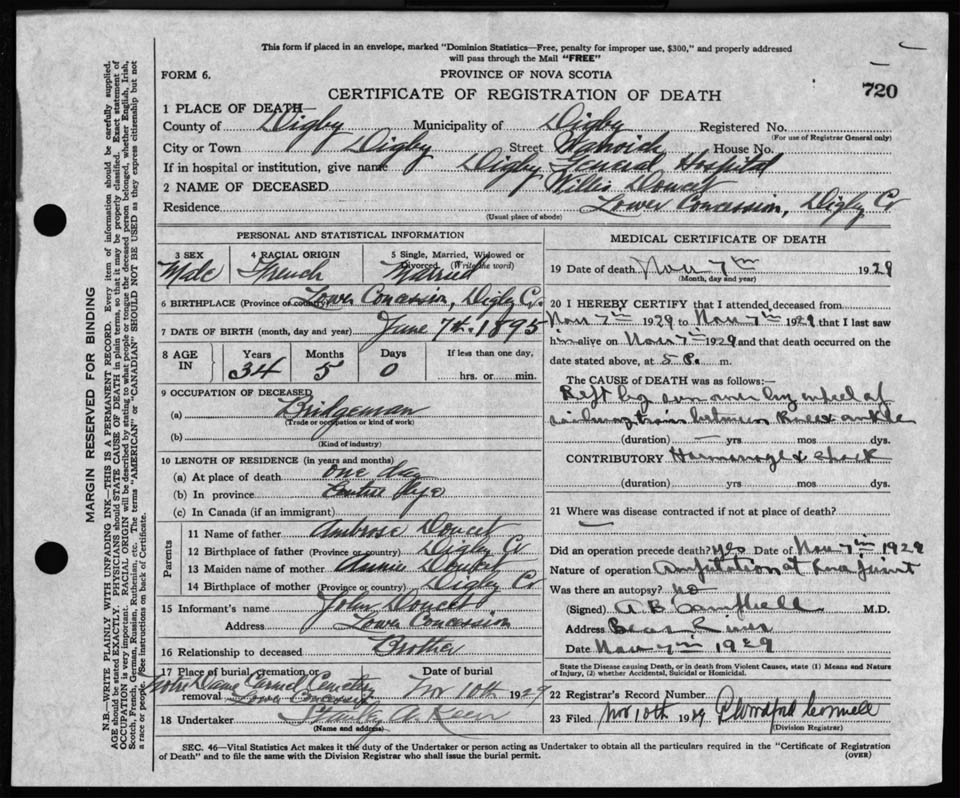 This form if placed in an envelope, marked "Dominion Statistics—Free, penalty for improper use, $300," and properly addressed
will pass through the Mail "FREE"
FORM 6.
PROVINCE OF NOVA SCOTIA
CERTIFICATE OF REGISTRATION OF DEATH
720
1 PLACE OF DEATH—
County of Digby Municipality of Digby Registered No.
(For use of Registrar General only)
City or Town Digby Street Warwick House No.
If in hospital or institution, give name Digby General Hospital
2 NAME OF DECEASED Willis Doucet
Residence Lower Concession, Digby Co
(Usual place of abode)
PERSONAL AND STATISTICAL INFORMATION
3 SEX Male
4 RACIAL ORIGIN French
5 Single, Married, Widowed or Divorced (Write the word) Married
6 BIRTHPLACE (Province or country) Lower Concession, Digby Co.
7 DATE OF BIRTH (month, day and year) June 7th. 1895
8 AGE IN
Years 34 Months 5 Days 0
If less than one day,
hrs. or min.
9 OCCUPATION OF DECEASED
(a) Bridgeman
(Trade or occupation or kind of work)
(b)
(Kind of industry)
10 LENGTH OF RESIDENCE (in years and months)
(a) At place of death one day
(b) In province Entire life
(c) In Canada (if an immigrant)
Parents
11 Name of father Ambrose Doucet
12 Birthplace of father (Province or country) Digby Co
13 Maiden name of mother Annie
14 Birthplace of mother (Province or country) Digby Co
15 Informant's name John Doucet
Address Lower Concession
16 Relationship to deceased Brother
17 Place of burial, cremation or removal Cemetery Lower Concession
Date of burial Nov 10th 1929
18 Undertaker
(Name and address)
MEDICAL CERTIFICATE OF DEATH
19 Date of death Nov 7th 1929
(Month, day and year)
20 I HEREBY CERTIFY that I attended deceased from
Nov 7th 1929 to Nov 7th 1929 that I last saw
him alive on Nov 7th 1929 and that death occurred on the
date stated above, at 5 P. m.
The CAUSE OF DEATH was as follows:—
Left leg run over by wheel of
railway train between knee & ankle
(duration) — yrs mos dys.
CONTRIBUTORY Hemorrhage & shock
(duration) yrs mos dys.
21 Where was disease contracted if not at place of death?
Did an operation precede death? yes Date of Nov 7th 1929
Nature of operation Amputation at knee joint
Was there an autopsy? no
(Signed) A B Campbell M.D.
Address Bear River
Date Nov 7th 1929
State the Disease causing Death, or in death from Violent Causes, state (1) Means and Nature
of Injury, (2) whether Accidental, Suicidal or Homicidal.
22 Registrar's Record Number
23 Filed Nov 10th 1929
(Division Registrar)
SEC. 46—Vital Statistics Act makes it the duty of the Undertaker or person acting as Undertaker to obtain all the particulars required in the "Certificate of Registration
of Death" and to file the same with the Division Registrar who shall issue the burial permit.
(OVER)
MARGIN RESERVED FOR BINDING
N.B.—WRITE PLAINLY WITH UNFADING INK—THIS IS A PERMANENT RECORD. Every item of information should be carefully supplied.
AGE should be stated EXACTLY. PHYSICIANS should STATE CAUSE OF DEATH in plain terms, so that it may be properly classified. Exact statement of
OCCUPATION is very important. RACIAL ORIGIN will be described by stating to what people or tongue the deceased person belonged, whether English, Irish,
Scotch, French, German, Russian, Ruthenian, etc. The terms "AMERICAN" or "CANADIAN" SHOULD NOT BE USED as they express citizenship but not
a race or people. See instructions on back of Certificate.